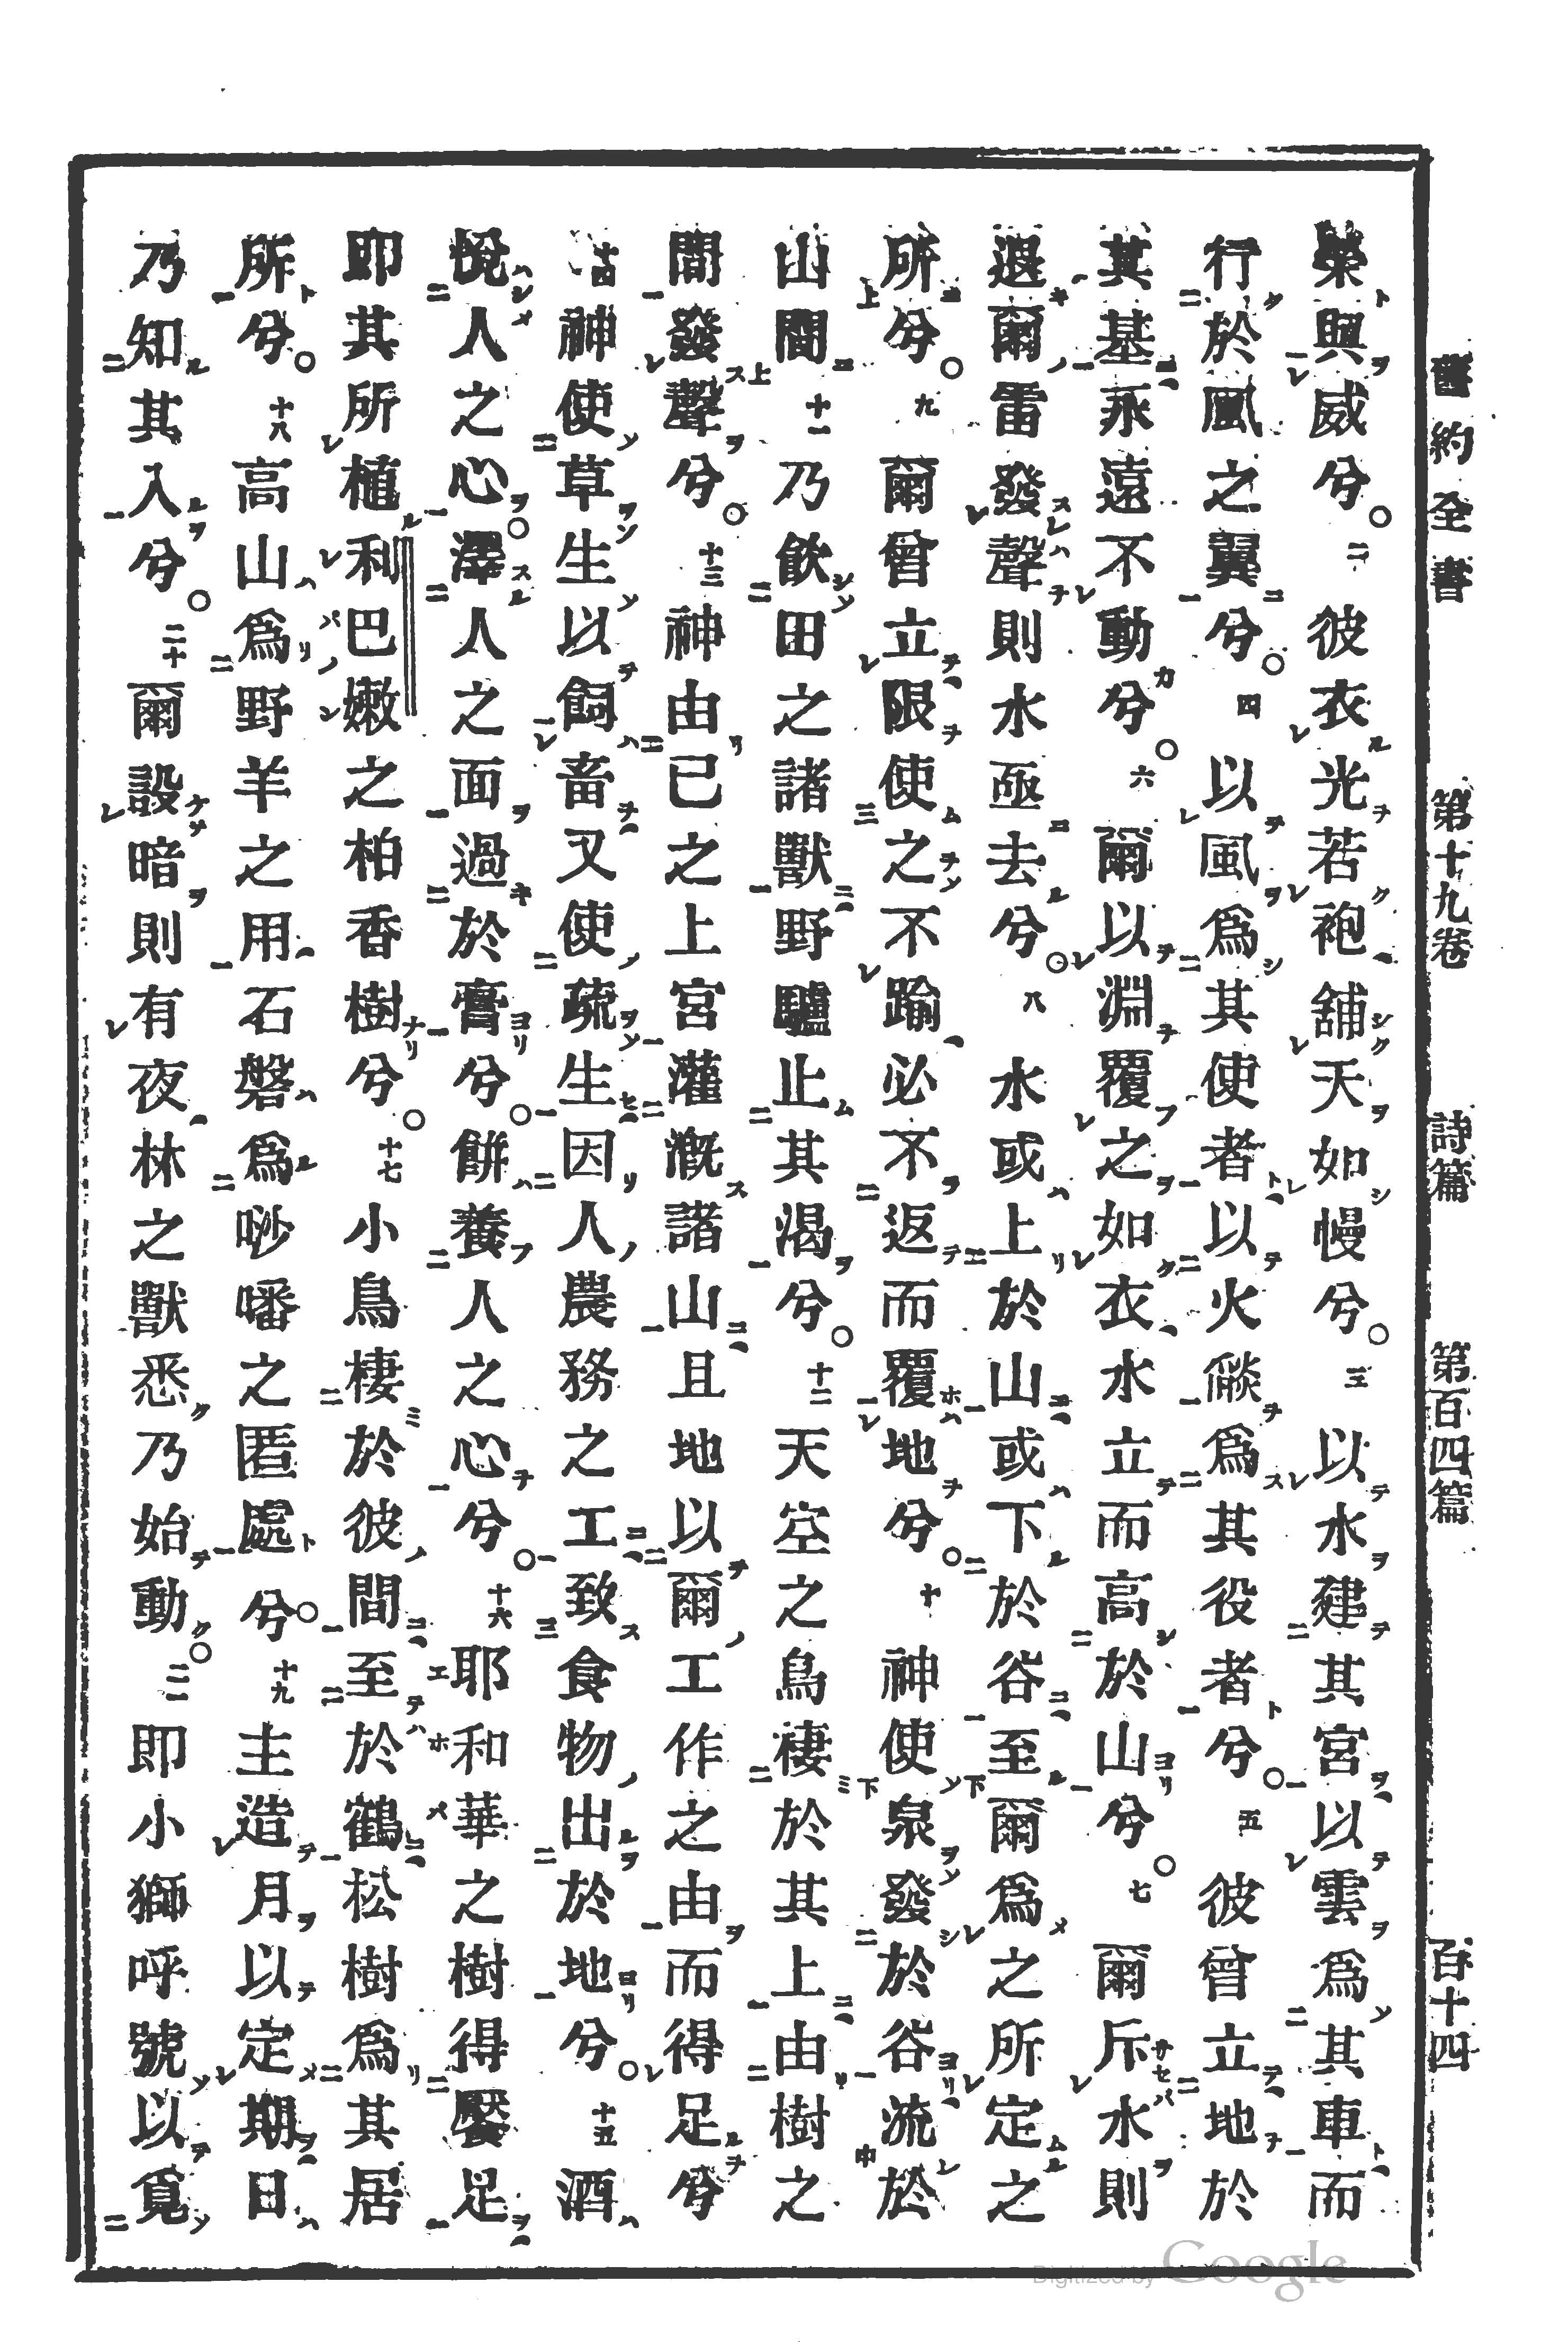 舊約全書　第十九卷　詩篇　第百四篇　百十四
榮與威兮○二彼衣光若袍舖天如幔兮○三以水建其宮以雲爲其車而
行於風之翼兮○四以風爲其使者以火燄爲其役者兮○五彼曾立地於
其基永遠不動兮○六爾以淵覆之如衣水立而高於山兮○七爾斥水則
退爾雷發聲則水亟去兮○八水或上於山或下於谷至爾爲之所定之
所兮○九爾曾立限使之不踰必不返而覆地兮○十神使泉發於谷流於
山間十一乃飲田之諸獸野驢止其渴兮○十二天空之鳥棲於其上由樹之
間發聲兮○十三神由已之上宮灌漑諸山且地以爾工作之由而得足兮
十四神使草生以飼畜又使疏生因人農務之工致食物出於地兮○十五酒
悅人之心○澤人之面過於膏兮○餅養人之心兮○十六耶和華之樹得饜足
即其所植利巴嫩之柏香樹兮○十七小鳥棲於彼間至於鶴松樹爲其居
所兮○十八高山爲野羊之用石磐爲唦噃之匿處兮○十九主造月以定期日
乃知其入兮○二十爾設暗則有夜林之獸悉乃始動○二一即小獅呼號以覓
Digitized by Google